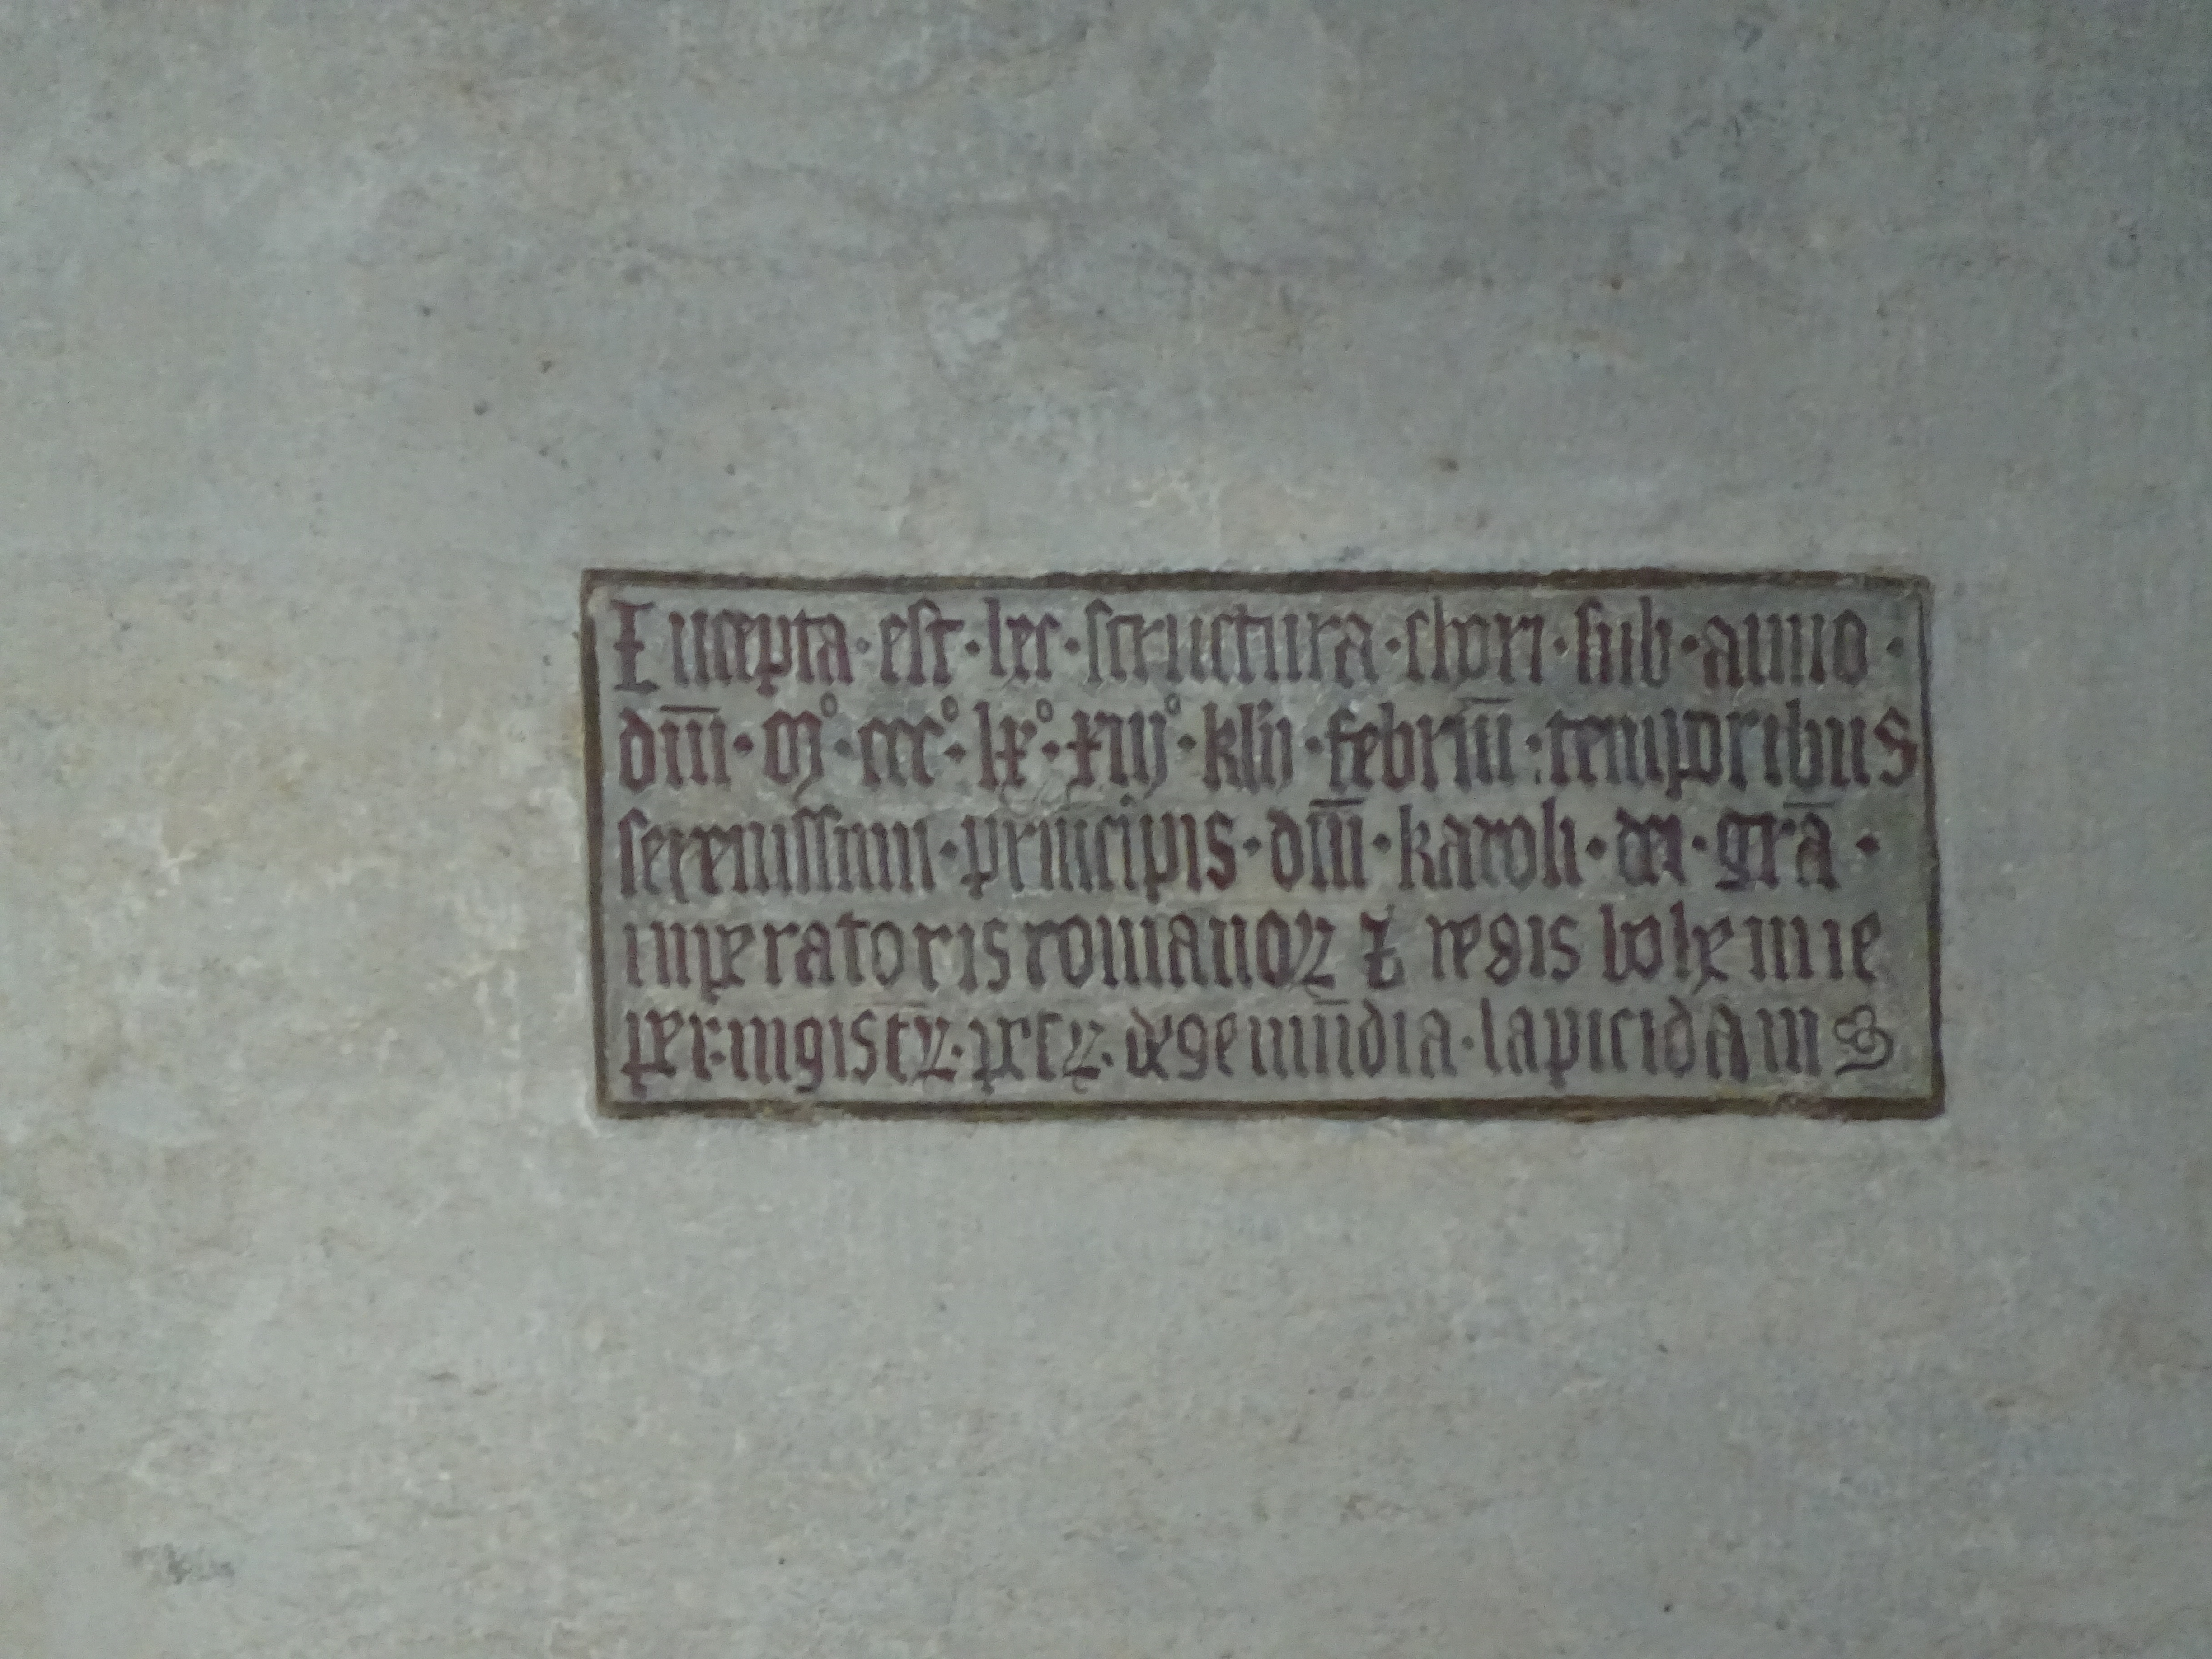 Incepta · est · hec · structura · chori · sub · anno ·
dn̄i · mº · cccº · lxº · xiijº · kln · febrīu · temporibus
serenissimi · principis · dn̄i · karoli · dei · grā ·
imperatoris romanoꝝ ⁊ regis bohemie
per · mgistꝝ · petꝝ · de gemūdia · lapicidam